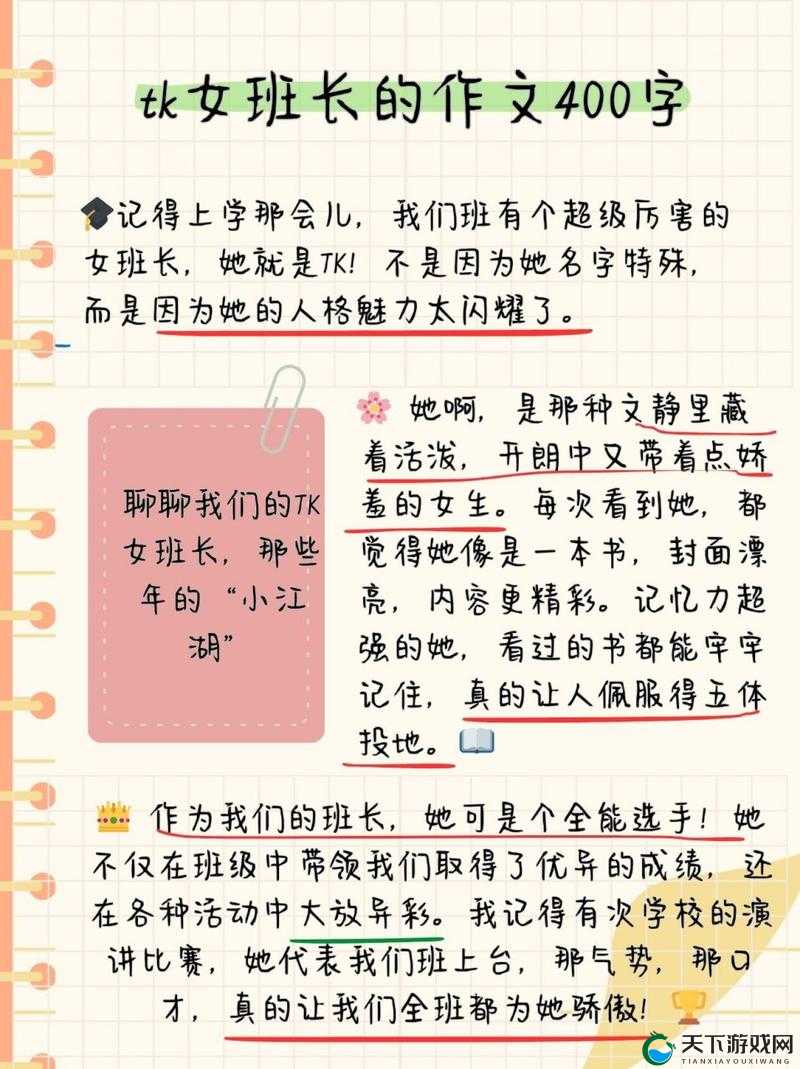 tk女班长的作文400字
记得上学那会儿，我们班有个超级厉害的
女班长，她就是TK！不是因为她名字特殊，
而是因为她的人格魅力太闪耀了。
聊聊我们的TK
女班长，那些
年的“小江
湖”
她啊，是那种文静里藏
着活泼，开朗中又带着点娇
羞的女生。每次看到她，都
觉得她像是一本书，封面漂
亮，内容更精彩。记忆力超
强的她，看过的书都能牢牢
记住，真的让人佩服得五体
投地。
作为我们的班长，她可是个全能选手！她
不仅在班级中带领我们取得了优异的成绩，还
在各种活动中大放异彩。我记得有次学校的演
讲比赛，她代表我们班上台，那气势，那口
才，真的让我们全班都为她骄傲！
天下游戏网
TIANXIAYOUXIWANG